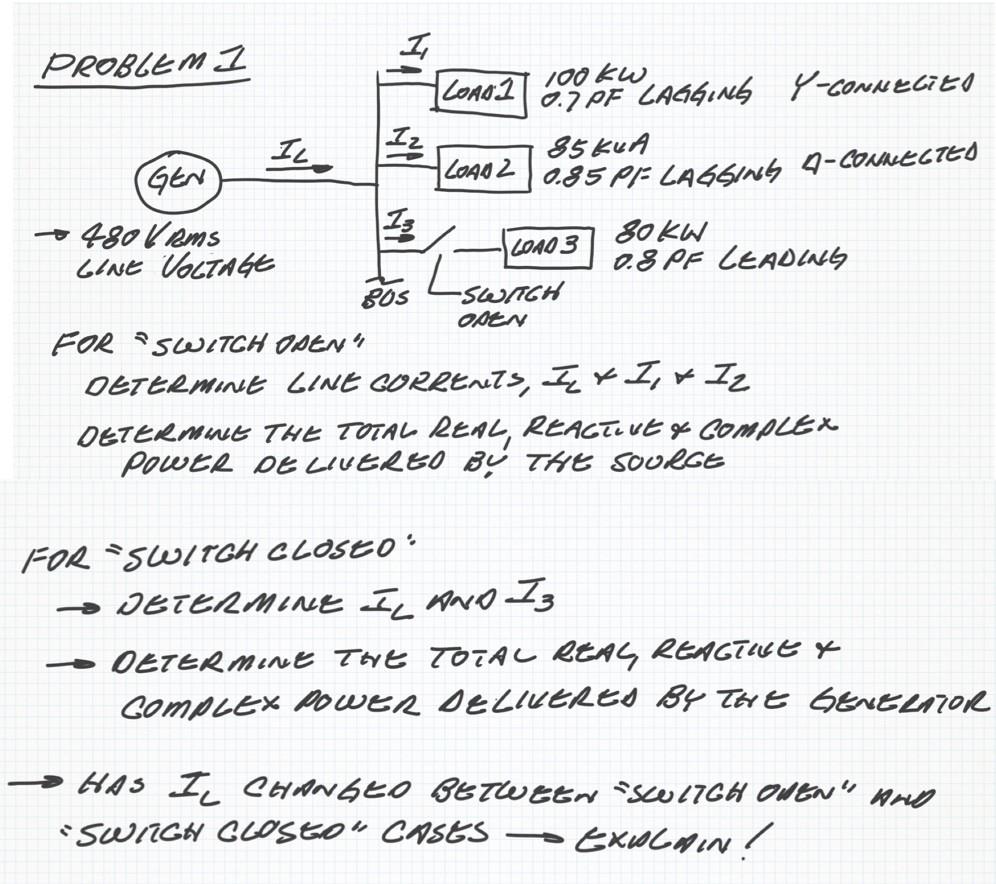 PROBLEM 1
I1
LOAD 1
100 KW
0.7 PF LAGGING
Y-CONNECTED
I2
LOAD 2
85 KVA
0.85 PF LAGGING
Δ-CONNECTED
GEN
IL
→ 480 V RMS
LINE VOLTAGE
I3
LOAD 3
80 KW
0.8 PF LEADING
BUS
SWITCH
OPEN
FOR "SWITCH OPEN"
DETERMINE LINE CURRENTS, IL & I1 & I2
DETERMINE THE TOTAL REAL, REACTIVE & COMPLEX
POWER DELIVERED BY THE SOURCE
FOR "SWITCH CLOSED"
→ DETERMINE IL AND I3
→ DETERMINE THE TOTAL REAL, REACTIVE &
COMPLEX POWER DELIVERED BY THE GENERATOR
→ HAS IL CHANGED BETWEEN "SWITCH OPEN" AND
"SWITCH CLOSED" CASES → EXPLAIN!